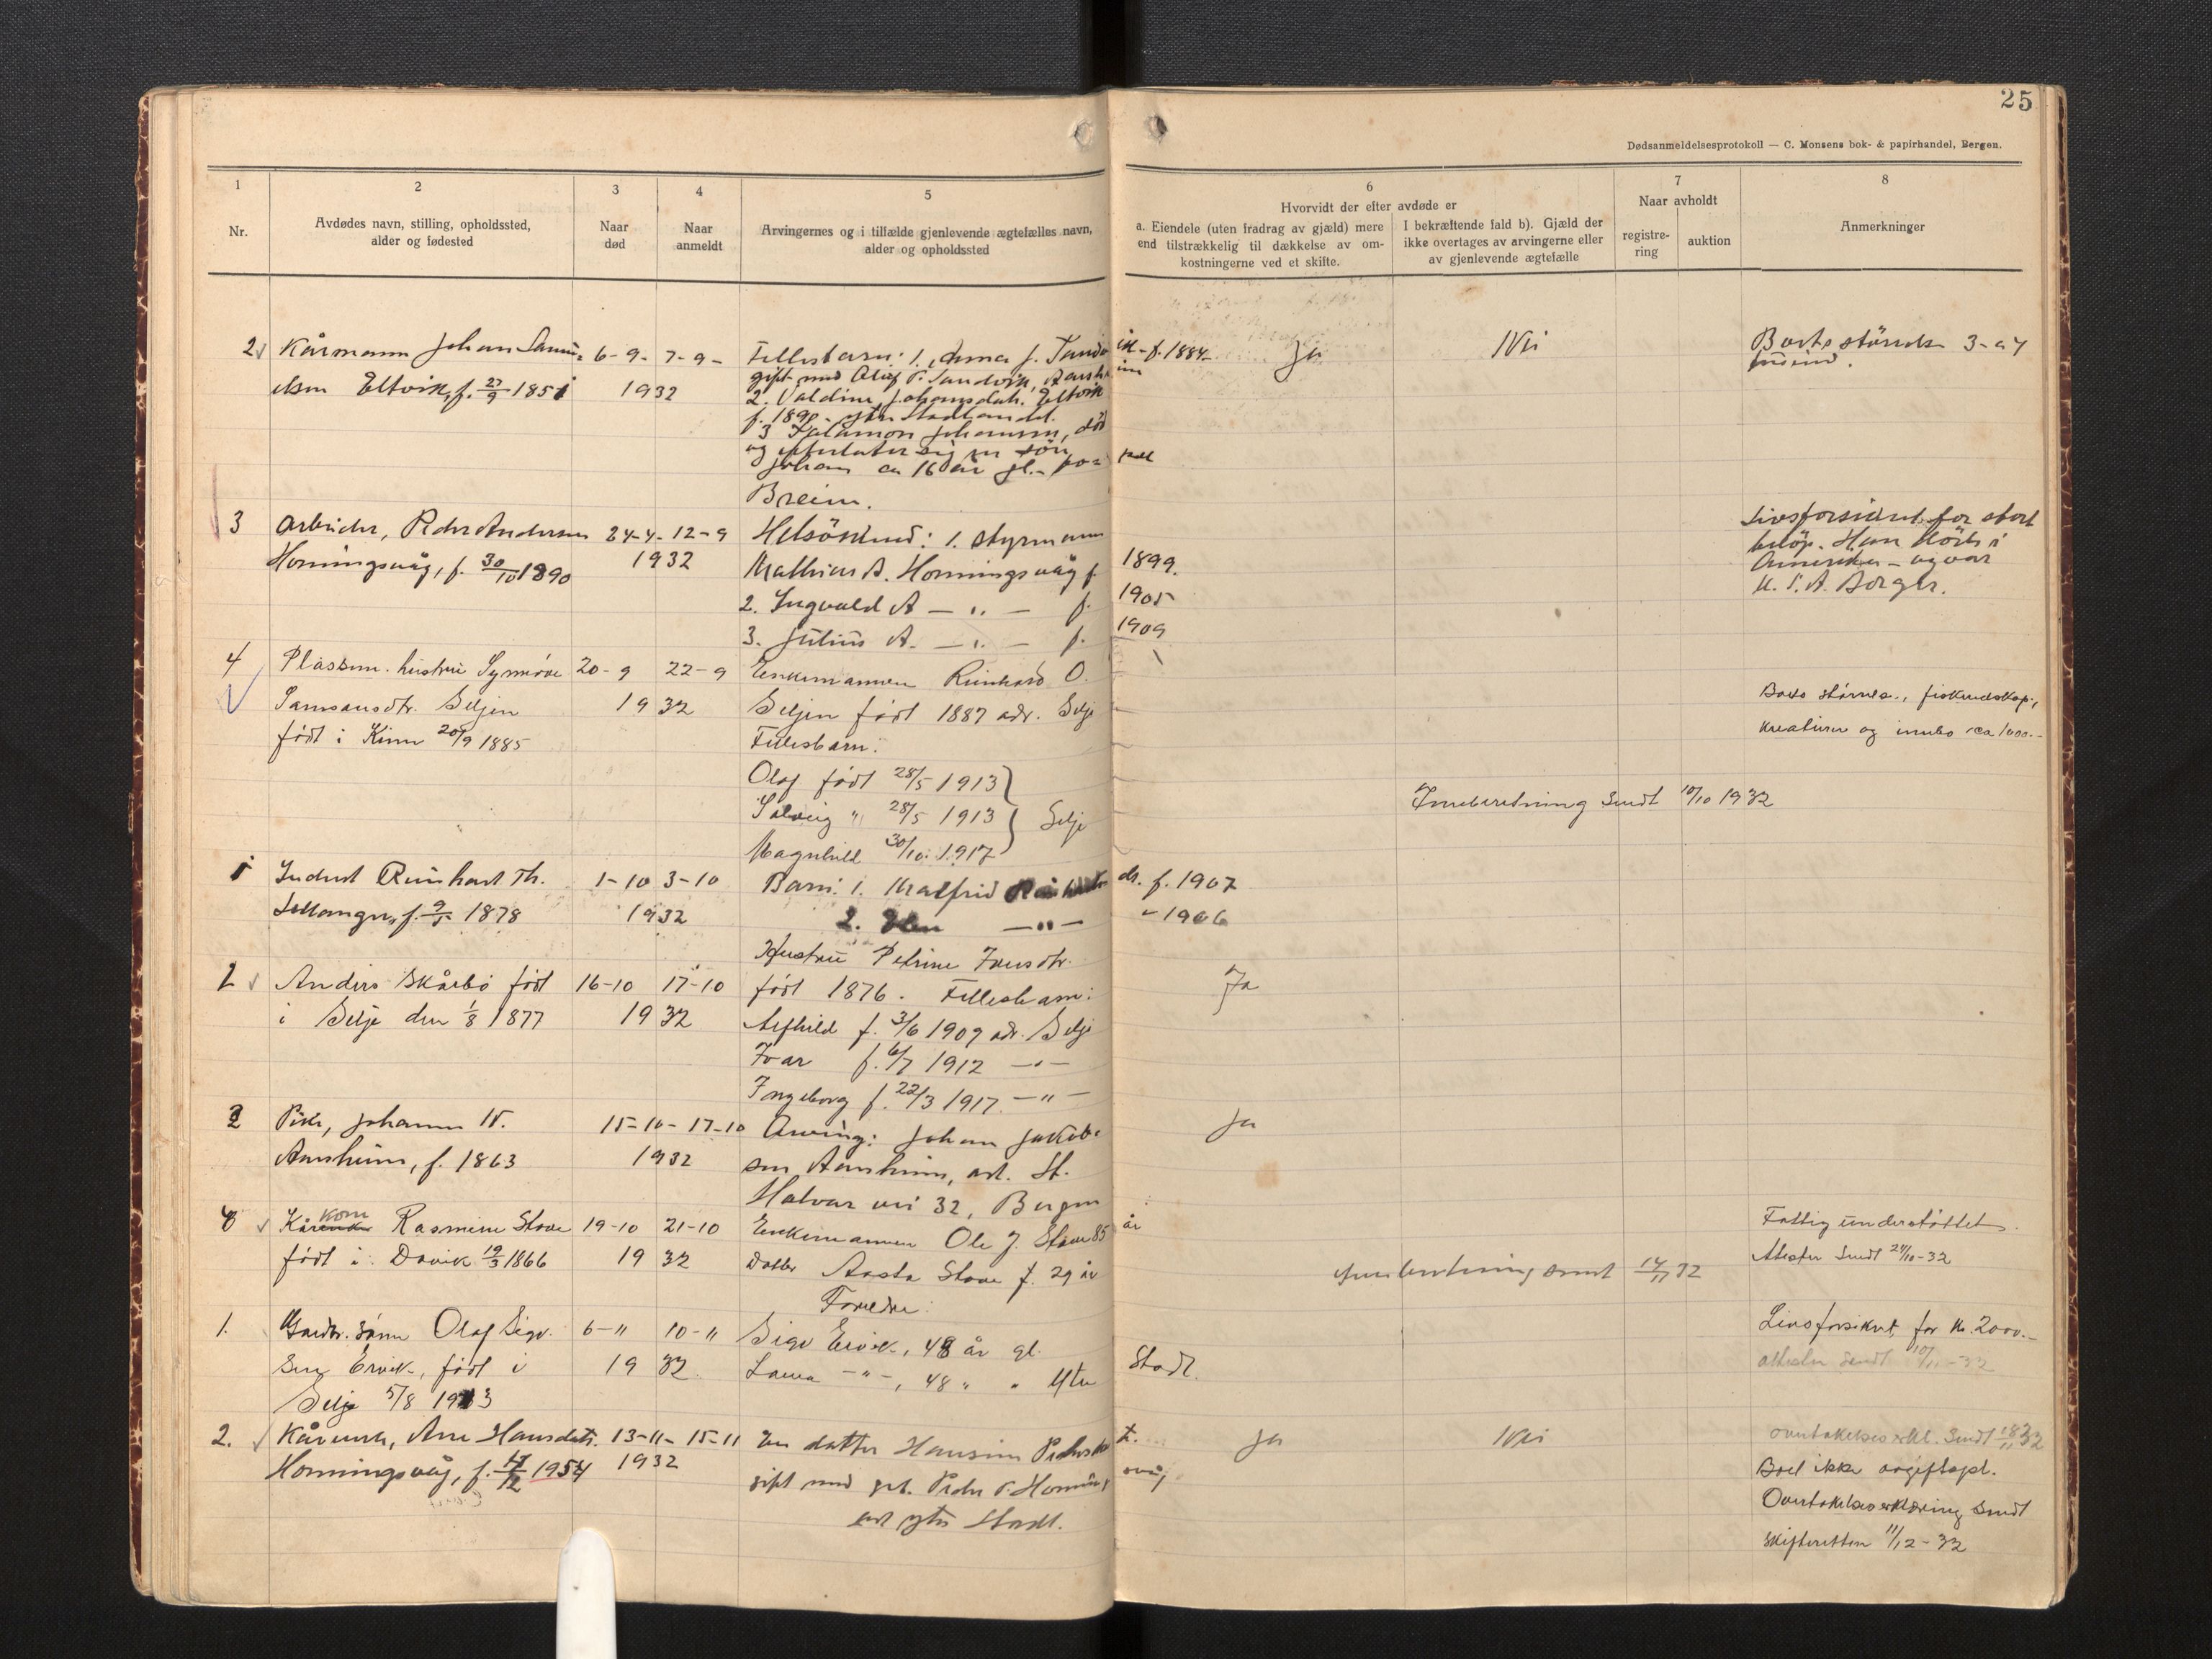 25
Dødsanmeldelsesprotokoll — C. Monsens bok- & papirhandel, Bergen.
1
Nr.
2
Avdødes navn, stilling, opholdssted,
alder og fødested
3
Naar
død
4
Naar
anmeldt
5
Arvingernes og i tilfælde gjenlevende ægtefælles navn,
alder og opholdssted
6
Hvorvidt der efter avdøde er
a. Eiendele (uten fradrag av gjæld) mere
end tilstrækkelig til dækkelse av om-
kostningerne ved et skifte.
I bekræftende fald b). Gjæld der
ikke overtages av arvingerne eller
av gjenlevende ægtefælle
7
Naar avholdt
registre-
ring
auktion
8
Anmerkninger
2 Kårmann Johan Samu- 6-9- 7-9-
elsen Eltvik, f. 27/9 1851 1932
Fellesbarn: 1.
gift med Olaf P. Sandvik, Aarsheim
2. Valdine Johansdatr. Eltvik
f. 1890 ytre Stadlandet.
3 Salamon Johansen, död
og efterlater sig en sön
Johan ca 16 år gl.
Breim.
f. 1884
Ja
Nei
Boets störrelse 3-a4
3 Arbeider, Peder Andersen 24-4- 12-9
Honningsvåg, f. 30/10 1890 1932
Helsöskend: 1. styrmann
Mathias A. Honningsvåg f. 1899.
2. Ingvald A — " — f. 1905
3. Julius A. — " — f. 1909
Livsforsikret for stort
belöp. Han döde i
Amerika - og var
U.S.A. Borger.
4 Plassm. hustru Synnöve 20-9 22-9
Samsonsdtr. Seljen 1932
født i Kinn 20/9 1885
Enkemannen Reinhard O.
Seljen født 1887 adr. Selje
Fellesbarn:
Olaf født 28/5 1913
Solveig " 28/5 1913 Selje
Magnhild 30/10 1917
Boets størrelse, fiskeredskap,
kreaturer og innbo ca 1000.-
Inneberetning sendt 10/10 1932
1 Reinhart Th. 1-10 3-10
1878 1932
Barn: 1. f. 1907
2. — " — - 1906
2 Anders Skårbø født 16-10 17-10
i Selje den 1/8 1877 1932
Hustru Petrine Iversdtr.
født 1876. Fellesbarn:
Alfhild f. 3/6 1909 adr. Selje
Ivar f. 6/7 1912 — " —
Ingeborg f. 22/3 1917. — " —
Ja
3 Pike, Johanne N. 15-10- 17-10
Aarsheim, f. 1863 1932
Arving: Johan Jakob-
sen Aarsheim, adr. St.
Halvar vei 32, Bergen
Ja
Kårkone Rasmine Stave 19-10 21-10
født i Davik 19/3 1866 1932
Enkemannen Ole J. Stave 85 år
Datter Aasta Stave f. 29 år
Fattigunderstøttet.
Attester sendt 24/10-32
Inneberetning sendt 14/11 32
1. Gardbr. sønn Olaf Sigv. 6-" 10-"
sen Ervik, født i 1932
Selje 5/8 1913
Foreldre:
Sigv Ervik, 48 år gl.
Laura — " —, 48 " " Ytre Stadl.
Livsforsikret for kr. 2000.-
attester sendt 10/11-32
2. Kårenke, Ane Hansdatr. 13-11- 15-11
Honningsvåg, f. 1954 1932
En datter Hansine
gift med grb. Peder P. Honningsvåg
adr ytre Stadl.
Ja
Nei
overtakelseserkl. sendt 18/11 32
Boet ikke avgiftspl.
Overtakelseserklæring sendt
skifteretten 11/12-32